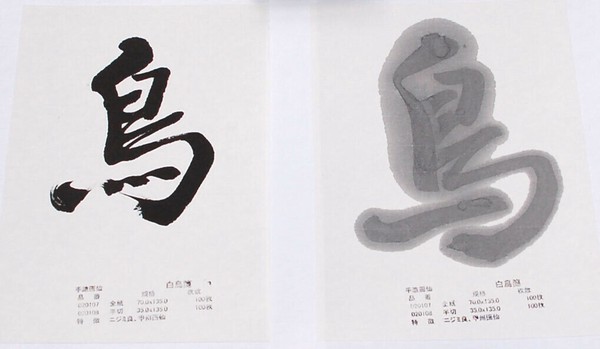 鳥
手漉画仙 白鳥
品番 規格 枚数
020107 全紙 70.0x135.0 100枚
020108 半切 35.0x135.0 100枚
特徴 ニジミ良、
鳥
手漉画仙 白鳥
品番 規格 枚数
020107 全紙 70.0x135.0 100枚
020108 半切 35.0x135.0 100枚
特徴 ニジミ良、